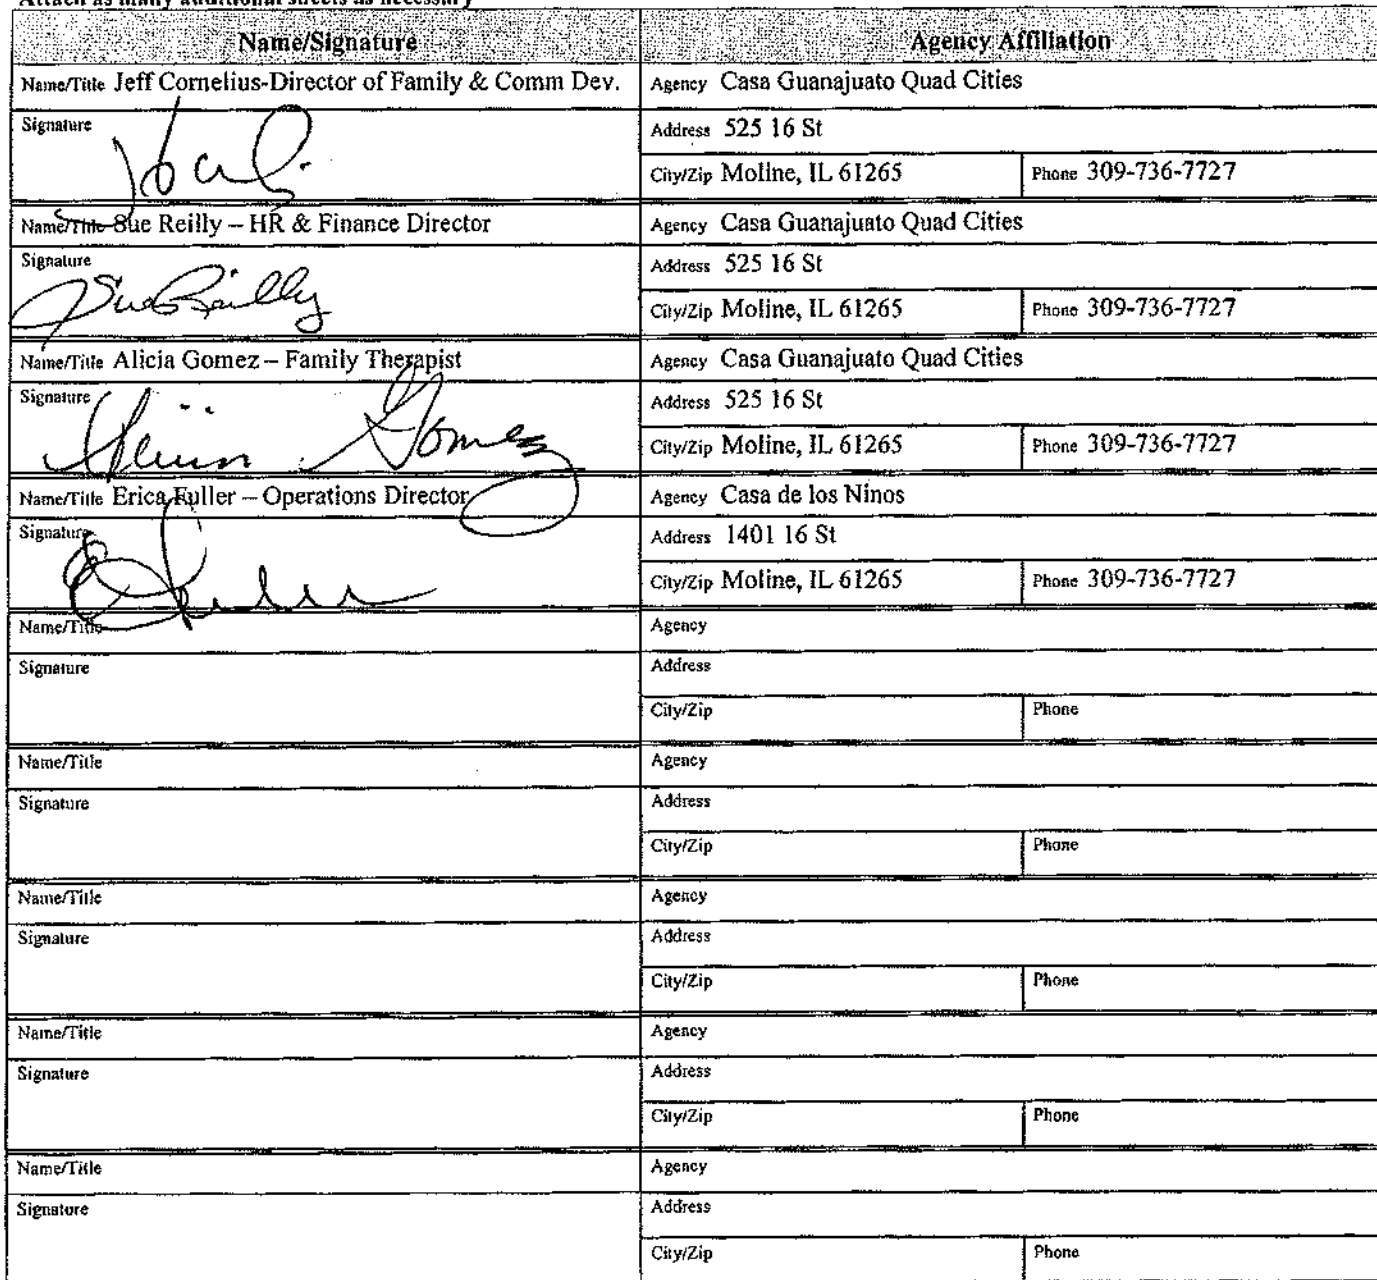 Attach as many additional sheets as necessary
Name/Signature Agency Affiliation
Name/Title Jeff Cornelius-Director of Family & Comm Dev. Agency Casa Guanajuato Quad Cities
Signature Address 525 16 St
City/Zip Moline, IL 61265 Phone 309-736-7727
Name/Title Sue Reilly – HR & Finance Director Agency Casa Guanajuato Quad Cities
Signature Sue Reilly Address 525 16 St
City/Zip Moline, IL 61265 Phone 309-736-7727
Name/Title Alicia Gomez – Family Therapist Agency Casa Guanajuato Quad Cities
Signature Alicia Gomez Address 525 16 St
City/Zip Moline, IL 61265 Phone 309-736-7727
Name/Title Erica Fuller – Operations Director Agency Casa de los Ninos
Signature Address 1401 16 St
City/Zip Moline, IL 61265 Phone 309-736-7727
Name/Title Agency
Signature Address
City/Zip Phone
Name/Title Agency
Signature Address
City/Zip Phone
Name/Title Agency
Signature Address
City/Zip Phone
Name/Title Agency
Signature Address
City/Zip Phone
Name/Title Agency
Signature Address
City/Zip Phone